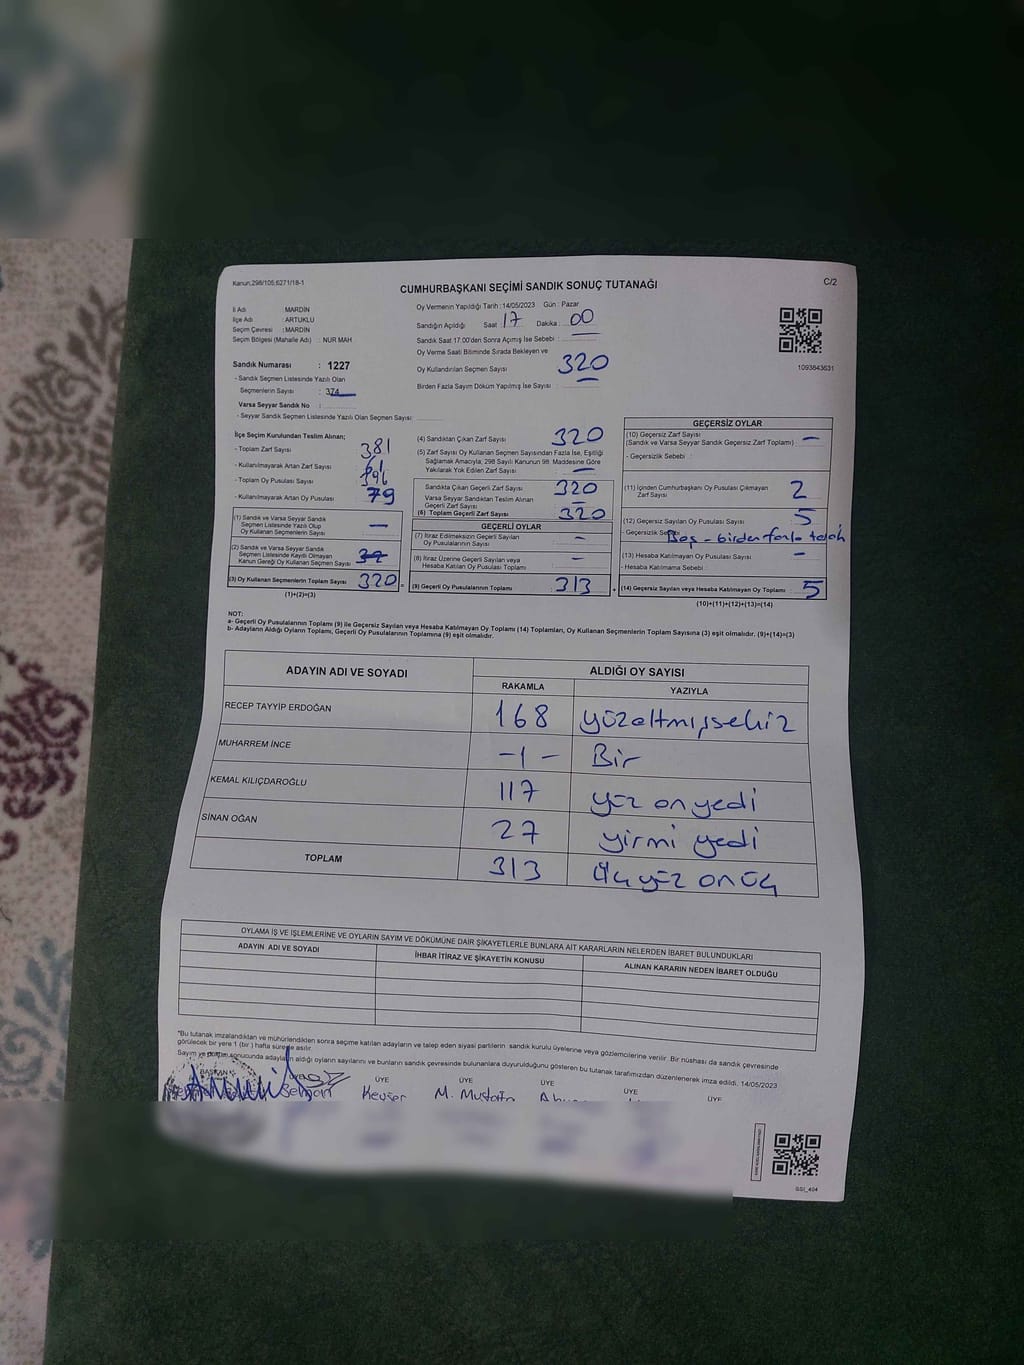 Kanun,298/105,6271/18-1
CUMHURBAŞKANI SEÇİMİ SANDIK SONUÇ TUTANAĞI
C/2
İl Adı : MARDİN
İlçe Adı : ARTUKLU
Seçim Çevresi : MARDİN
Seçim Bölgesi (Mahalle Adı) : NUR MAH
Oy Vermenin Yapıldığı Tarih : 14/05/2023 Gün : Pazar
Sandığın Açıldığı Saat 17 Dakika 00
Sandık Saat 17.00'den Sonra Açılmış İse Sebebi :
Oy Verme Saati Bitiminde Sırada Bekleyen ve
Oy Kullandırılan Seçmen Sayısı 320
Birden Fazla Sayım Döküm Yapılmış İse Sayısı :
1093843631
Sandık Numarası : 1227
- Sandık Seçmen Listesinde Yazılı Olan
Seçmenlerin Sayısı : 374
Varsa Seyyar Sandık No :
- Seyyar Sandık Seçmen Listesinde Yazılı Olan Seçmen Sayısı:
İlçe Seçim Kurulundan Teslim Alınan;
- Toplam Zarf Sayısı 381
- Kullanılmayarak Artan Zarf Sayısı
- Toplam Oy Pusulası Sayısı
- Kullanılmayarak Artan Oy Pusulası 79
(1) Sandık ve Varsa Seyyar Sandık
Seçmen Listesinde Yazılı Olup
Oy Kullanan Seçmenlerin Sayısı –
(2) Sandık ve Varsa Seyyar Sandık
Seçmen Listesinde Kayıtlı Olmayan
Kanun Gereği Oy Kullanan Seçmen Sayısı
(3) Oy Kullanan Seçmenlerin Toplam Sayısı 320
(1)+(2)=(3)
(4) Sandıktan Çıkan Zarf Sayısı 320
(5) Zarf Sayısı Oy Kullanan Seçmen Sayısından Fazla İse, Eşitliği
Sağlamak Amacıyla, 298 Sayılı Kanunun 98. Maddesine Göre
Yakılarak Yok Edilen Zarf Sayısı –
Sandıkta Çıkan Geçerli Zarf Sayısı 320
Varsa Seyyar Sandıktan Teslim Alınan
Geçerli Zarf Sayısı –
(6) Toplam Geçerli Zarf Sayısı 320
GEÇERLİ OYLAR
(7) İtiraz Edilmeksizin Geçerli Sayılan
Oy Pusulalarının Sayısı –
(8) İtiraz Üzerine Geçerli Sayılan veya
Hesaba Katılan Oy Pusulası Toplamı –
(9) Geçerli Oy Pusulalarının Toplamı 313
GEÇERSİZ OYLAR
(10) Geçersiz Zarf Sayısı
(Sandık ve Varsa Seyyar Sandık Geçersiz Zarf Toplamı) –
- Geçersizlik Sebebi :
(11) İçinden Cumhurbaşkanı Oy Pusulası Çıkmayan
Zarf Sayısı 2
(12) Geçersiz Sayılan Oy Pusulası Sayısı 5
- Geçersizlik Sebebi Boş - birden fazla
(13) Hesaba Katılmayan Oy Pusulası Sayısı –
- Hesaba Katılmama Sebebi :
(14) Geçersiz Sayılan veya Hesaba Katılmayan Oy Toplamı 5
(10)+(11)+(12)+(13)=(14)
NOT:
a- Geçerli Oy Pusulalarının Toplamı (9) ile Geçersiz Sayılan veya Hesaba Katılmayan Oy Toplamı (14) Toplamları, Oy Kullanan Seçmenlerin Toplam Sayısına (3) eşit olmalıdır. (9)+(14)=(3)
b- Adayların Aldığı Oyların Toplamı, Geçerli Oy Pusulalarının Toplamına (9) eşit olmalıdır.
ADAYIN ADI VE SOYADI ALDIĞI OY SAYISI
RAKAMLA YAZIYLA
RECEP TAYYİP ERDOĞAN 168 yüzaltmışsekiz
MUHARREM İNCE -1- Bir
KEMAL KILIÇDAROĞLU 117 yüz onyedi
SİNAN OĞAN 27 yirmi yedi
TOPLAM 313 üçyüz onüç
OYLAMA İŞ VE İŞLEMLERİNE VE OYLARIN SAYIM VE DÖKÜMÜNE DAİR ŞİKAYETLERLE BUNLARA AİT KARARLARIN NELERDEN İBARET BULUNDUKLARI
ADAYIN ADI VE SOYADI İHBAR İTİRAZ VE ŞİKAYETİN KONUSU ALINAN KARARIN NEDEN İBARET OLDUĞU
*Bu tutanak imzalandıktan ve mühürlendikten sonra seçime katılan adayların ve talep eden siyasi partilerin sandık kurulu üyelerine veya gözlemcilerine verilir. Bir nüshası da sandık çevresinde
görülecek bir yere 1 (bir) hafta süre ile asılır.
Sayım ve döküm sonucunda adayların aldığı oyların sayılarını ve bunların sandık çevresinde bulunanlara duyurulduğunu gösteren bu tutanak tarafımızdan düzenlenerek imza edildi. 14/05/2023
BAŞKAN ÜYE ÜYE ÜYE ÜYE ÜYE ÜYE
Selman Kevser M. Mustafa
GSI_404